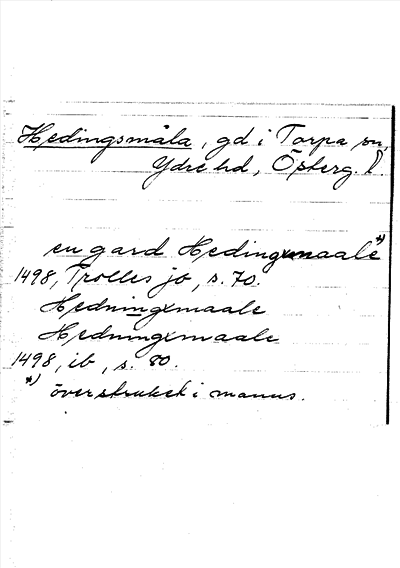 Hedingsmåla, gd i Torpa sn,
Ydre hd, Östерg.
en gard Hedingxmaale *)
1498, Trolles jb, s. 70.
Hedningxmaale
Hedningxmaale
1498, ib, s. 80.
*) överstruket i manus.